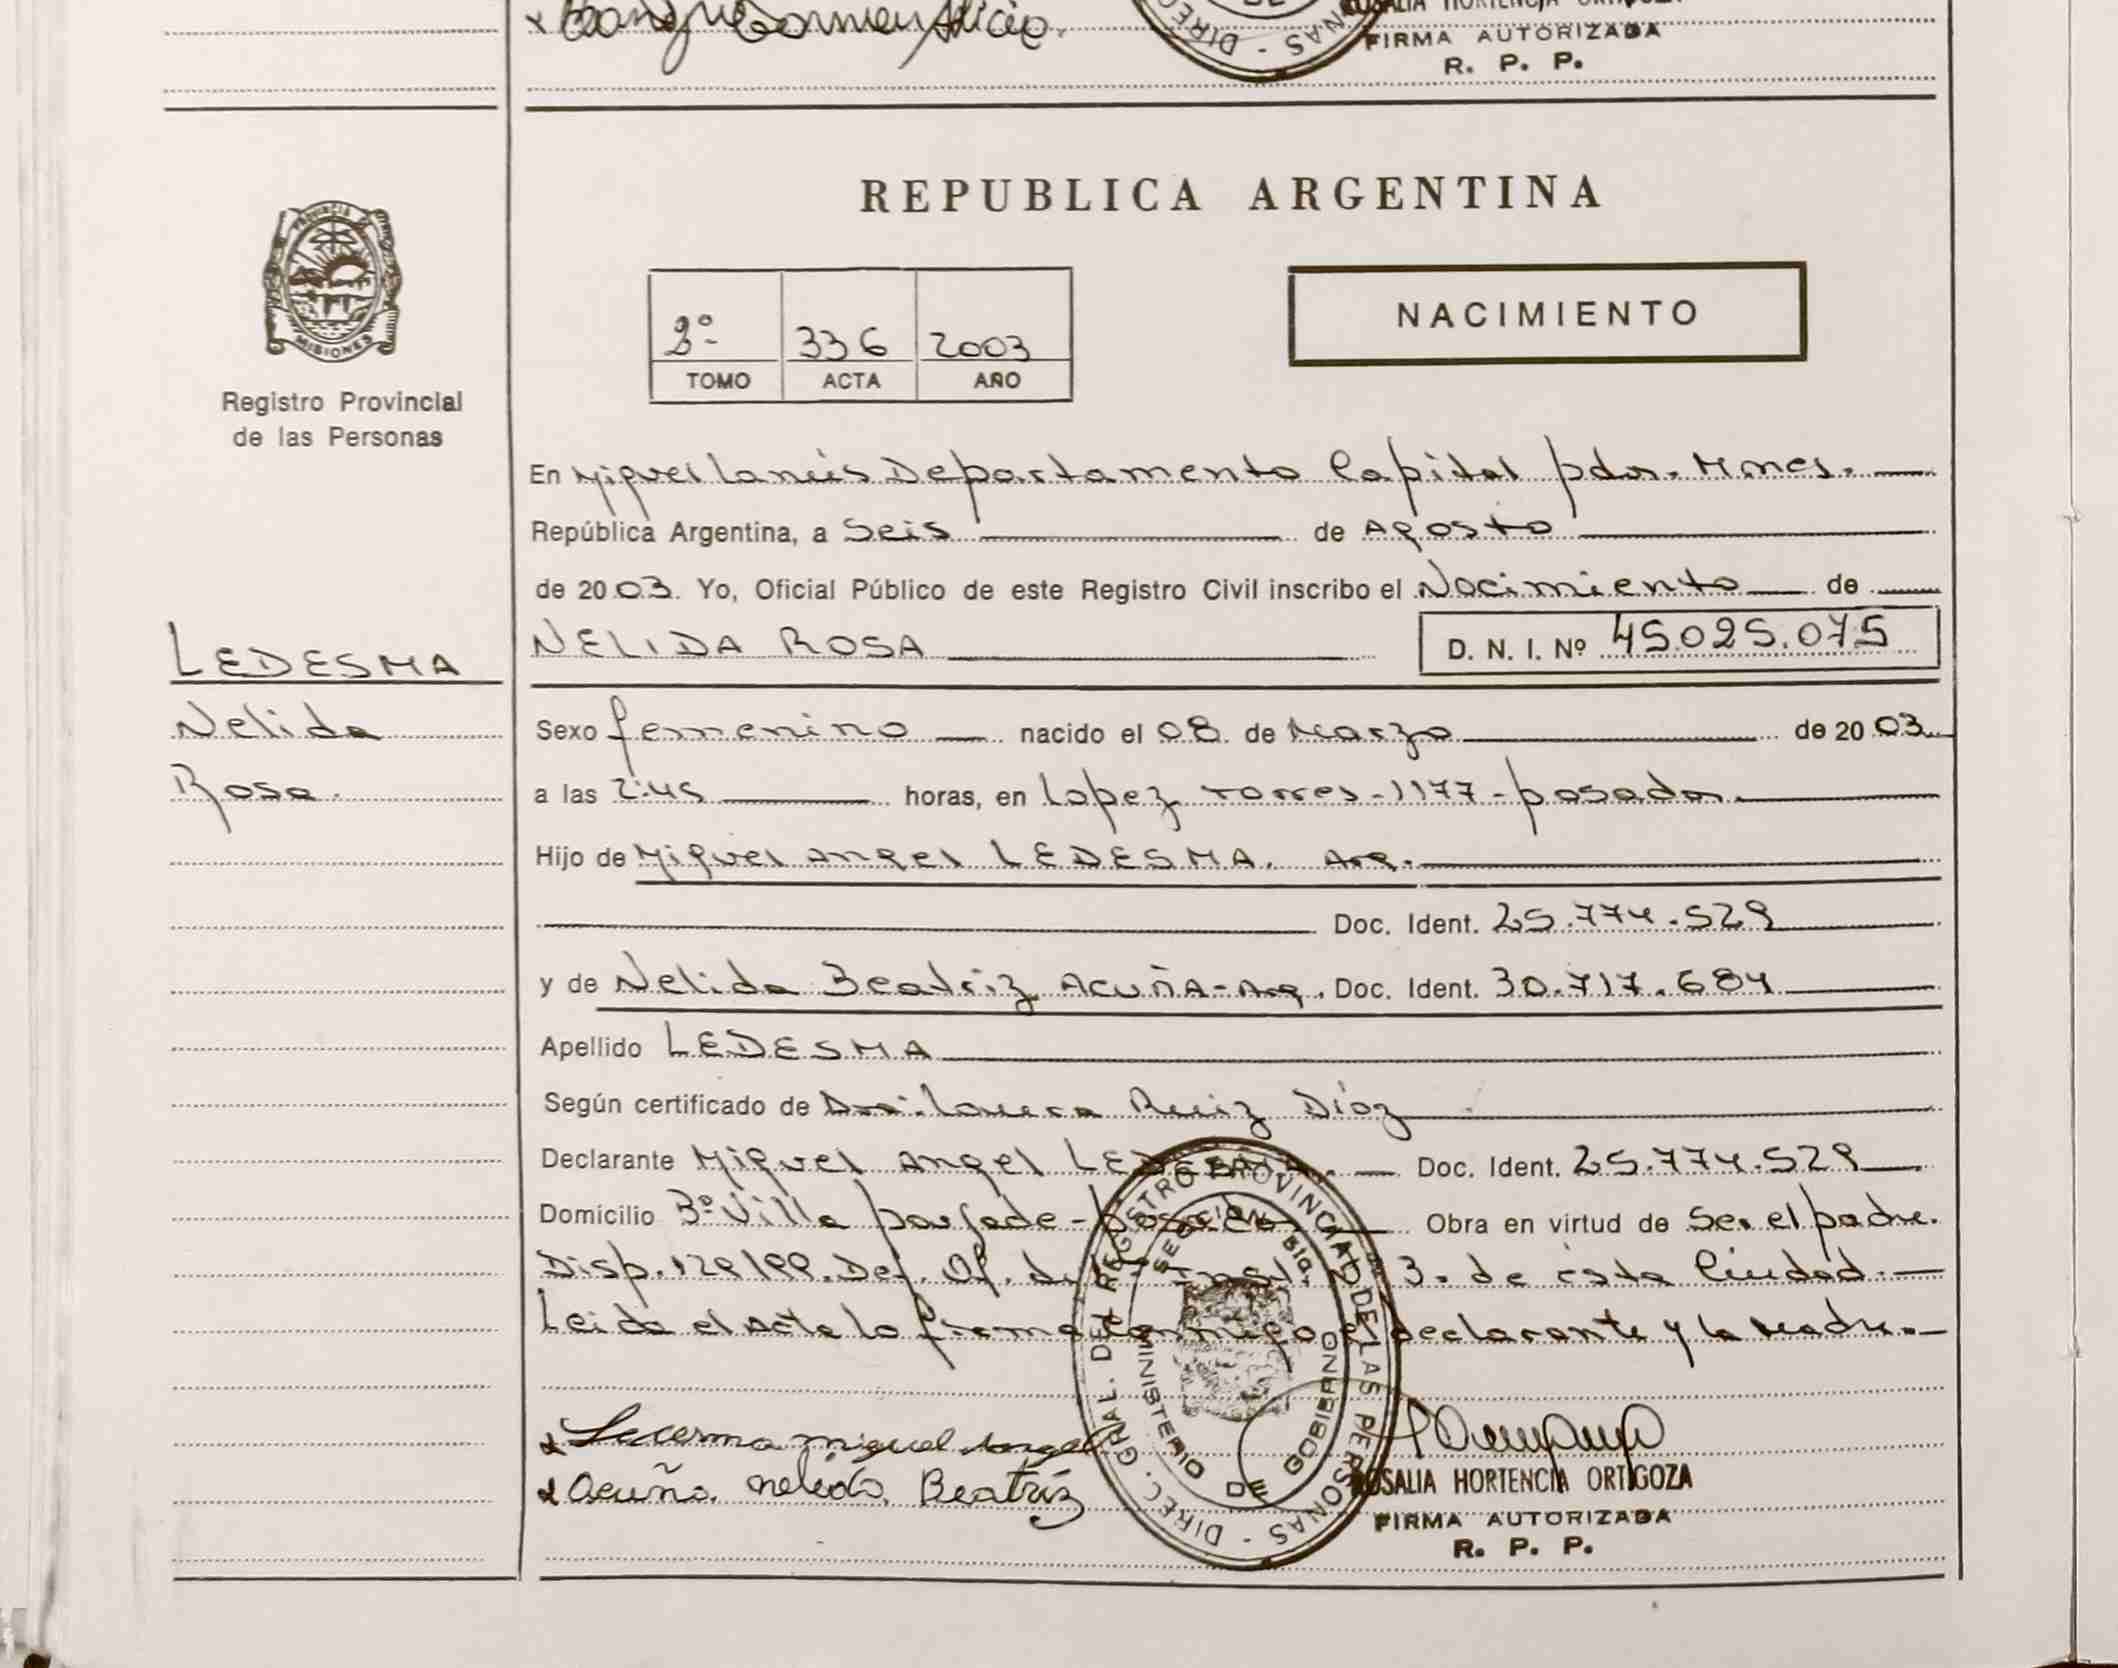 ROSALIA HORTENCIA ORTIGOZA
FIRMA AUTORIZADA
R. P. P.
REPUBLICA ARGENTINA
PROVINCIA DE
MISIONES
Registro Provincial
de las Personas
2º 336 2003
TOMO ACTA AÑO
NACIMIENTO
En Miguel Lanús Departamento Capital pdas. Mnes.
República Argentina, a Seis de Agosto
de 2003. Yo, Oficial Público de este Registro Civil inscribo el Nacimiento de
LEDESMA
Nelida
Rosa.
NELIDA ROSA D. N. I. Nº 45.025.075
Sexo femenino nacido el 08 de Marzo de 2003
a las 2:45 horas, en Lopez Torres-1177-posadas.
Hijo de Miguel Angel LEDESMA. Arg.
Doc. Ident. 25.774.529
y de Nelida Beatriz ACUÑA-Arg. Doc. Ident. 30.717.684
Apellido LEDESMA
Según certificado de Dra. Laura Ruiz Díaz
Declarante Miguel Angel LEDESMA. Doc. Ident. 25.774.529
Domicilio Bº Villa - Obra en virtud de Ser el padre.
Disp. 129/99. Def. Of. 3. de esta Ciudad.
Leida el Acta la firma conmigo el declarante y la Madre.
Ledesma Miguel Angel
Acuña Nelida Beatriz
DIREC. GRAL. DEL REGISTRO PROVINCIAL DE LAS PERSONAS
MINISTERIO DE GOBIERNO
ROSALIA HORTENCIA ORTIGOZA
FIRMA AUTORIZADA
R. P. P.